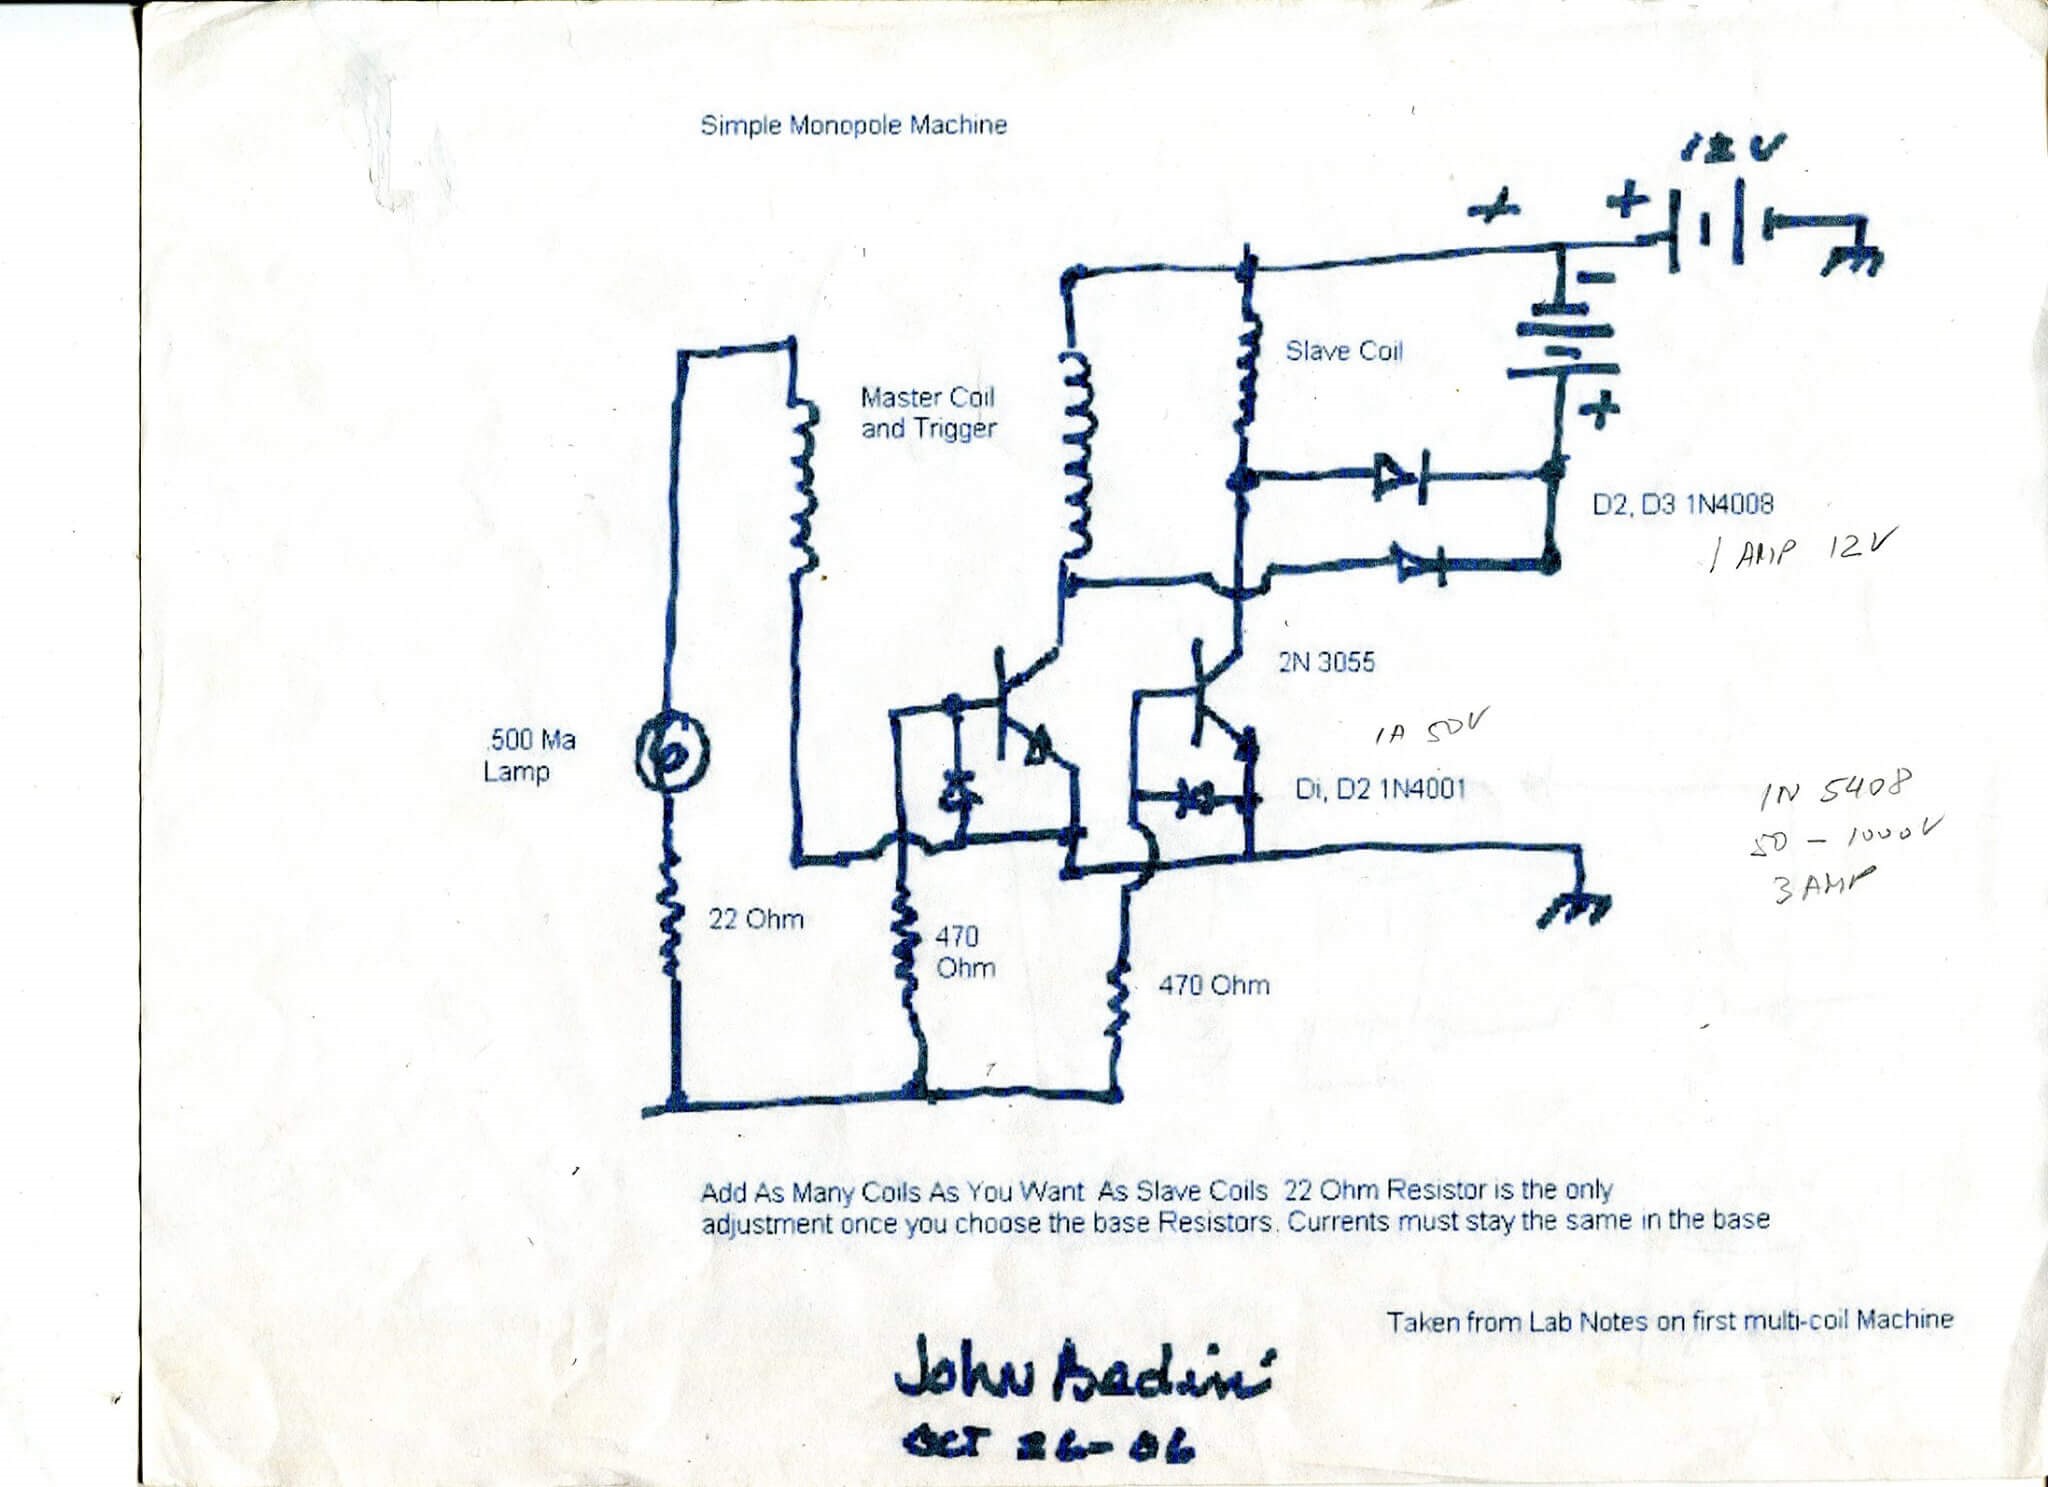 Simple Monopole Machine
12V
+
+
-
Slave Coil
Master Coil
and Trigger
+
D2, D3 1N4008
1 AMP 12V
2N 3055
1A 50V
.500 Ma
Lamp
Di, D2 1N4001
1N 5408
50 - 1000V
3 AMP
22 Ohm
470
Ohm
470 Ohm
Add As Many Coils As You Want As Slave Coils 22 Ohm Resistor is the only
adjustment once you choose the base Resistors. Currents must stay the same in the base
Taken from Lab Notes on first multi-coil Machine
John Bedini
OCT 26-06